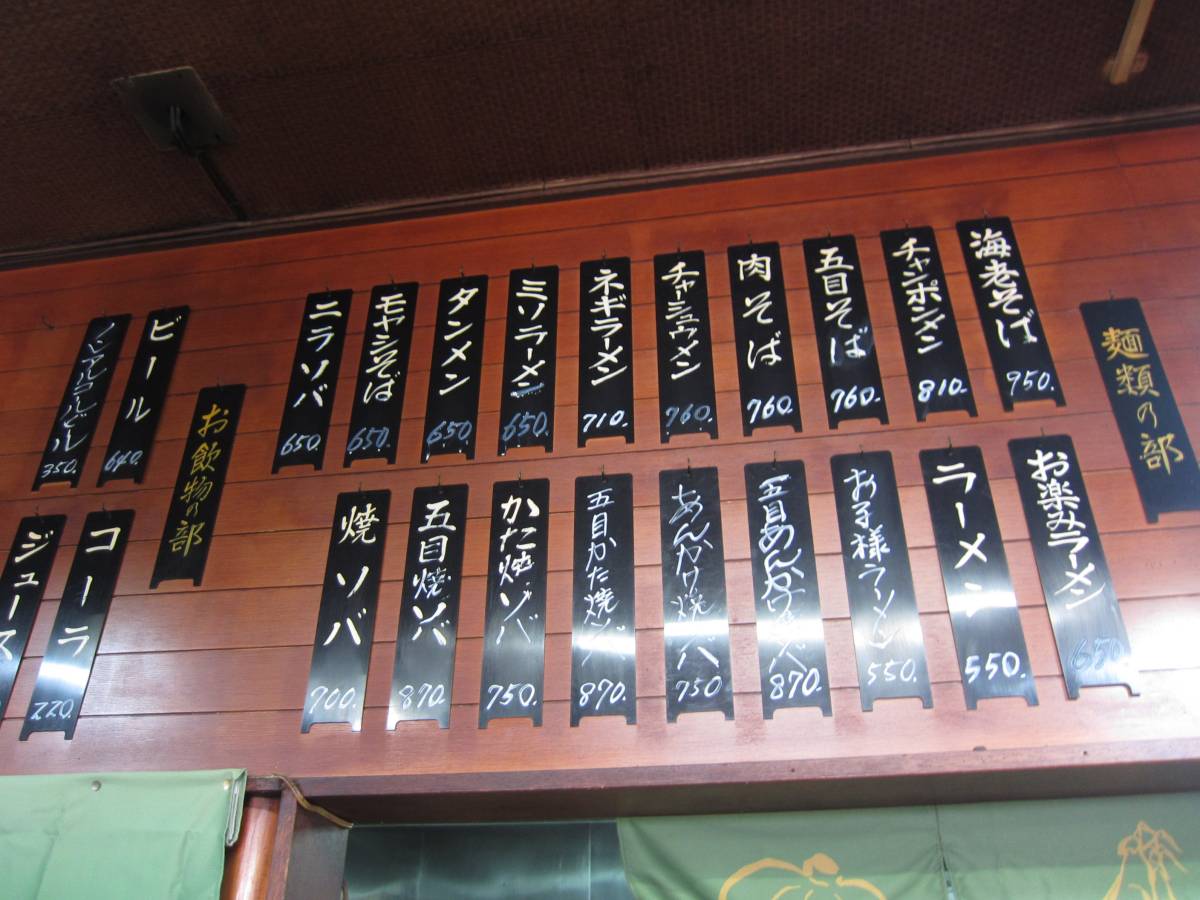 麺類の部
海老そば 950.
チャンポンメン 810.
五目そば 760.
肉そば 760.
チャーシュウメン 760.
ネギラーメン 710.
ミソラーメン 650.
タンメン 650
モヤシそば 650.
ニラソバ 650.
お楽みラーメン 650.
ラーメン 550.
お子様ラーメン 550.
五目あんかけ焼ソバ 870.
あんかけ焼ソバ 750
五目かた焼ソバ 870.
かた焼ソバ 750.
五目焼ソバ 870.
焼ソバ 700.
お飲物の部
ビール 640.
ノンアルコールビール 350.
コーラ 220.
ジュース